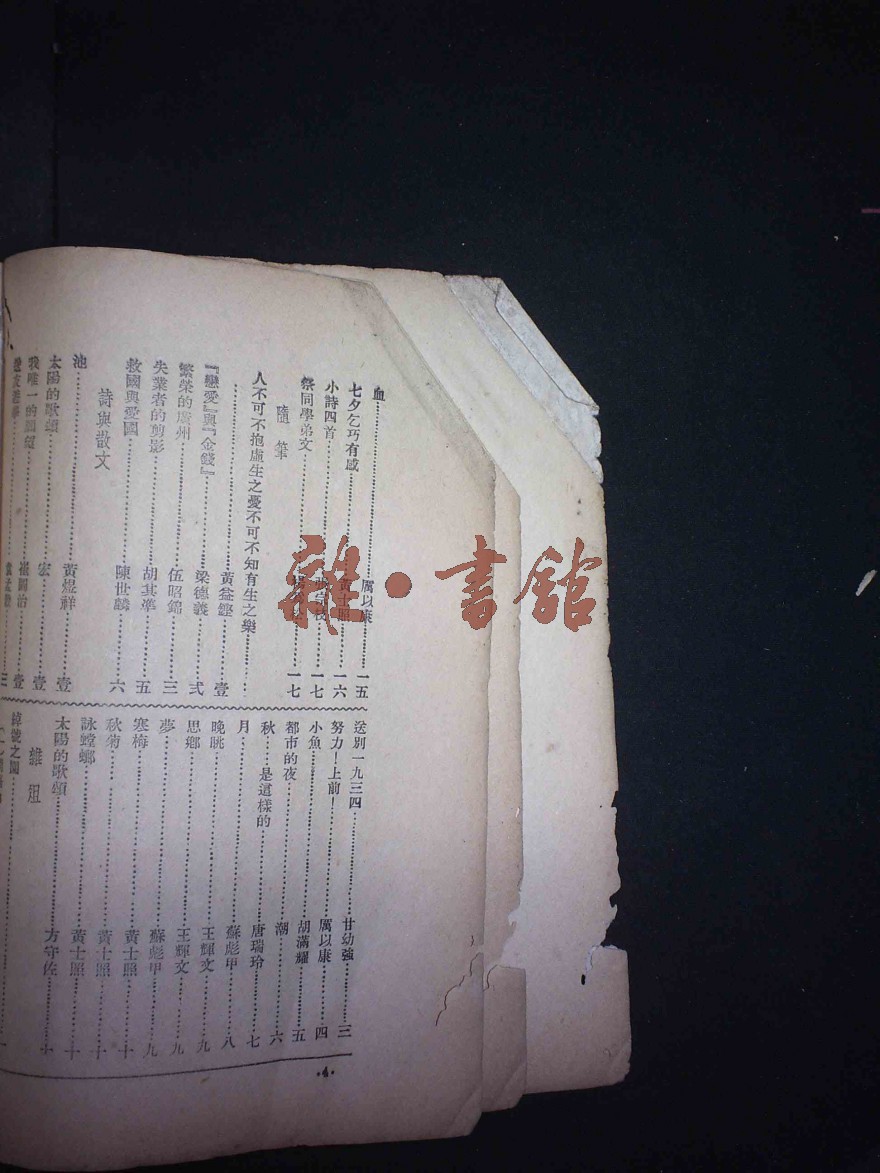 血 厲以康 一五
七夕乞巧有感 黃士照 一六
小詩四首 一七
祭同學弟文 一七
隨筆
人不可不抱虛生之憂不可不知有生之樂
黃益鏗 壹
『戀愛』與『金錢』 梁德義 弍
繁榮的廣州 伍昭錦 三
失業者的剪影 胡其準 五
救國與愛國 陳世麟 六
詩與散文
池 黃煜祥 壹
太陽的歌頌 宏 壹
我唯一的 壹
三
送別一九三四 甘幼強 三
努力！上前！ 厲以康 四
小魚 胡滿耀 五
都市的夜 潮 六
秋……是這樣的 唐瑞玲 七
月 蘇彪甲 八
晚眺 王輝文 九
思鄉 王輝文 九
夢 蘇彪甲 九
寒梅 黃士照 十
秋菊 黃士照 十
詠螳螂 黃士照 十
太陽的歌頌 方守佐 十
雜俎
綽號之間
·4·
雜·書館